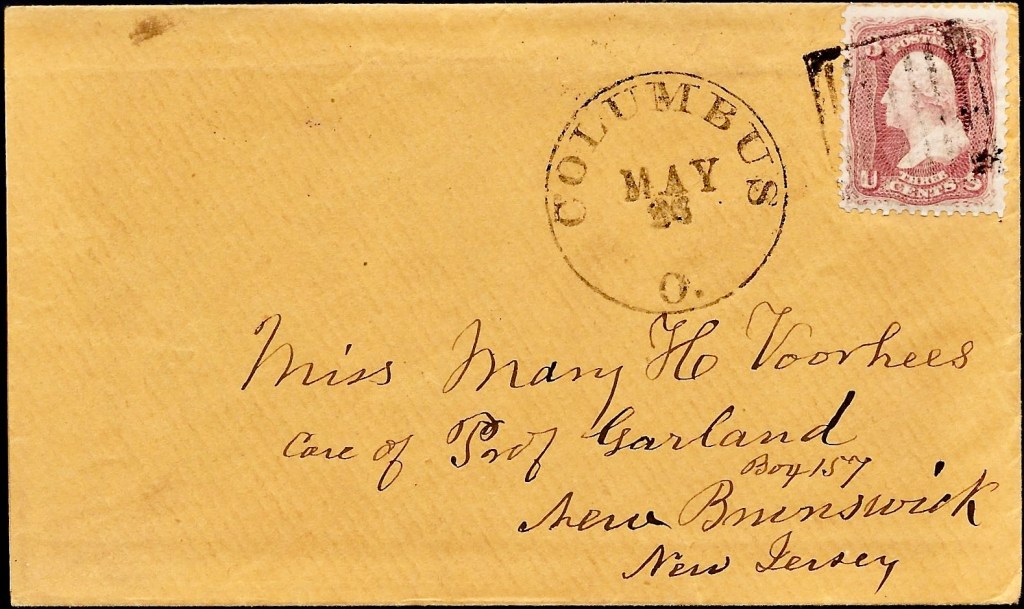 COLUMBUS
MAY
O.
U.S.
POSTAGE
3 3
THREE
U CENTS S
Miss Mary H Voorhees
Care of Prof Garland
Box 157
New Brunswick
New Jersey